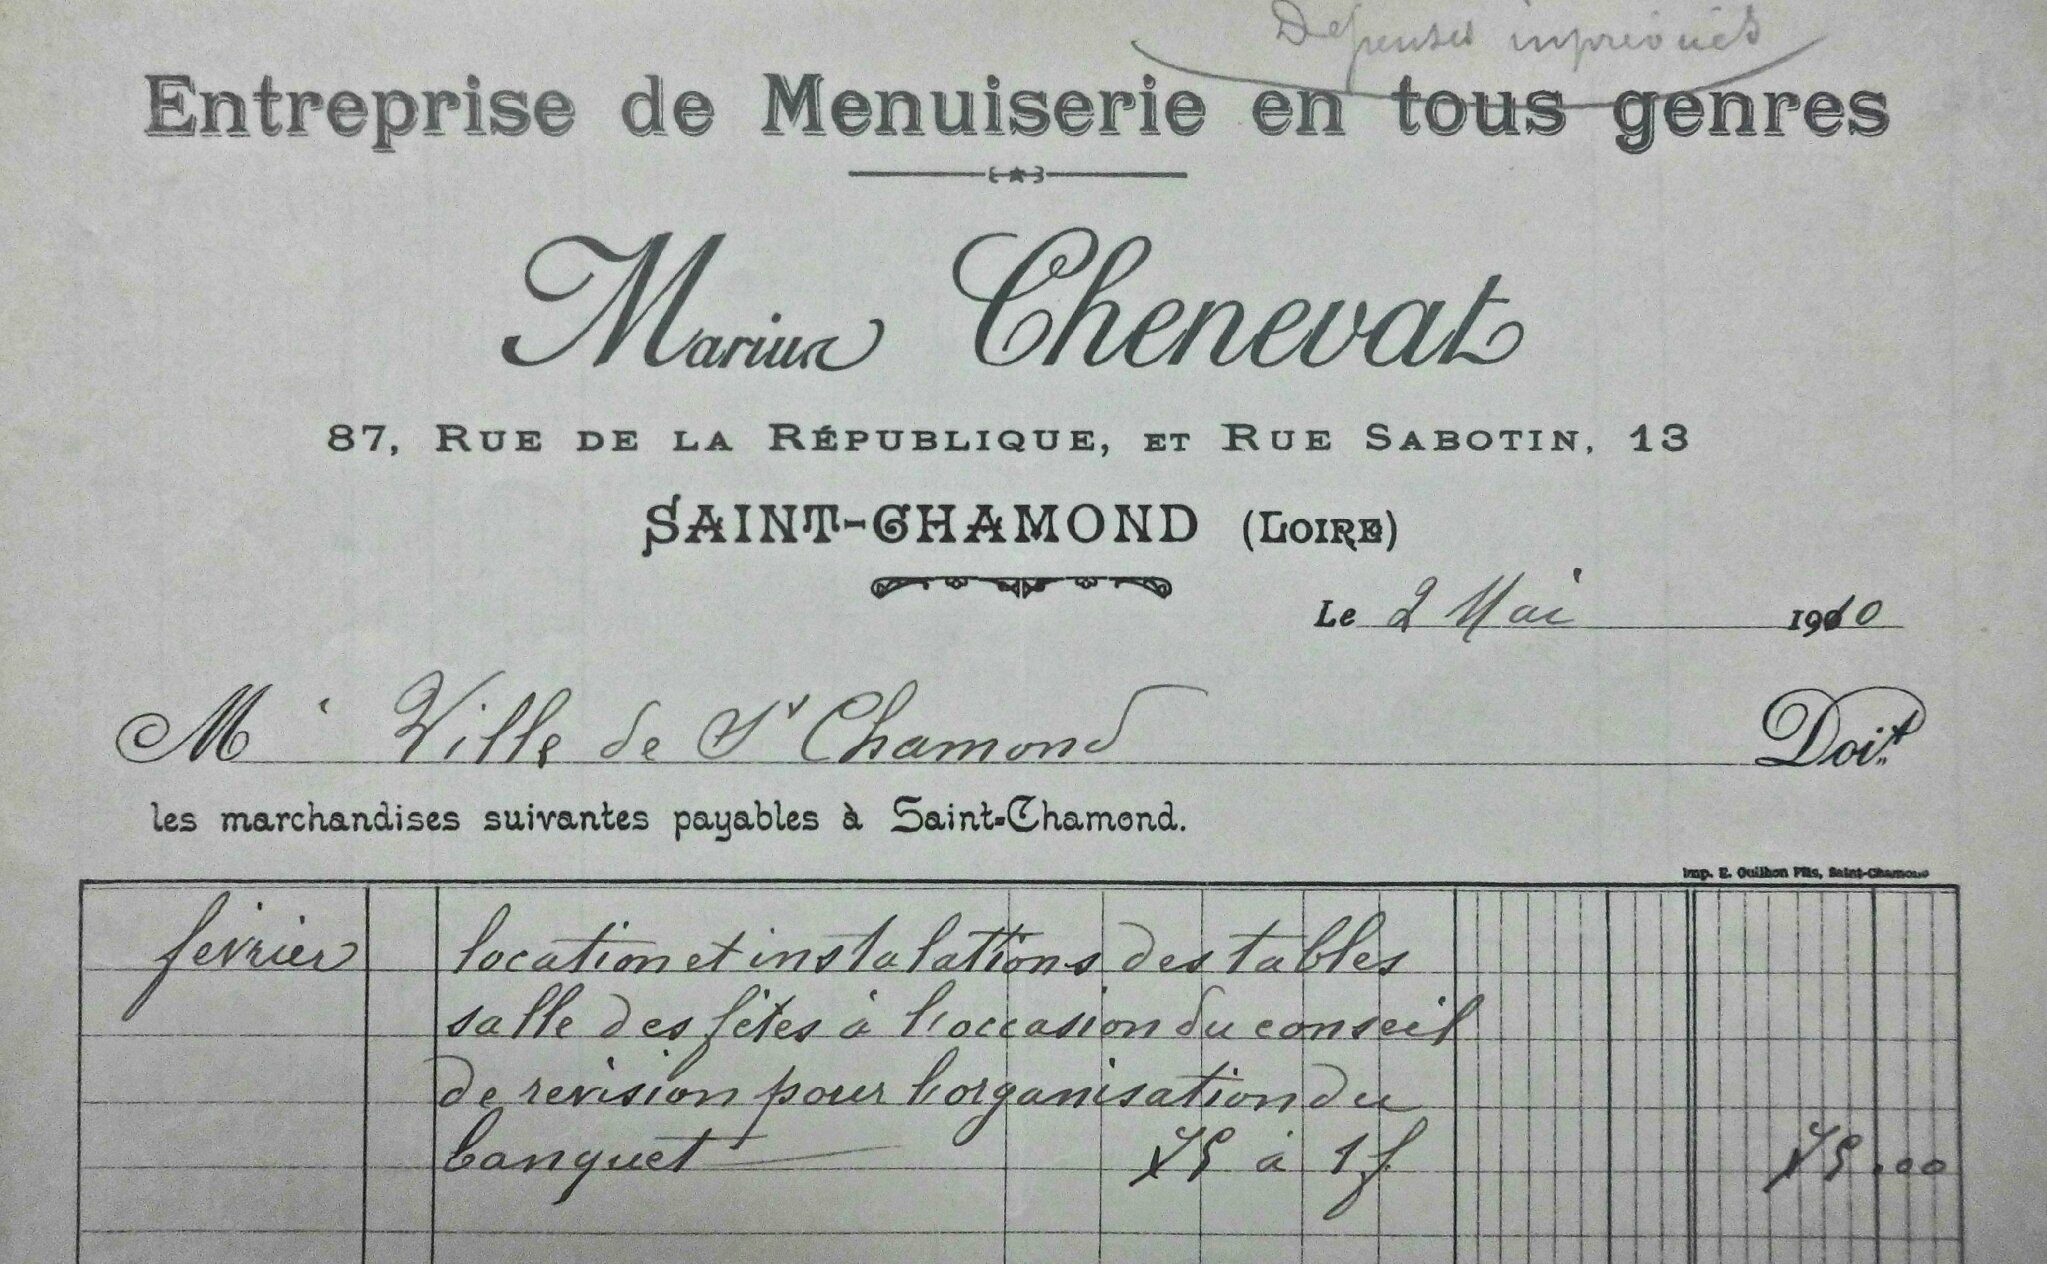 Dépenses imprévues
Entreprise de Menuiserie en tous genres
Marius Chenevat
87, RUE DE LA RÉPUBLIQUE, ET RUE SABOTIN, 13
SAINT-CHAMOND (LOIRE)
Le 2 Mai 1910
M Ville de St Chamond Doit
les marchandises suivantes payables à Saint-Chamond.
Imp. E. Guilhon Fils, Saint-Chamond
fevrier location et instalattions des tables
salle des fêtes à l'occasion du conseil
de revision pour l'organisation du
banquet 75 à 1f 75.00